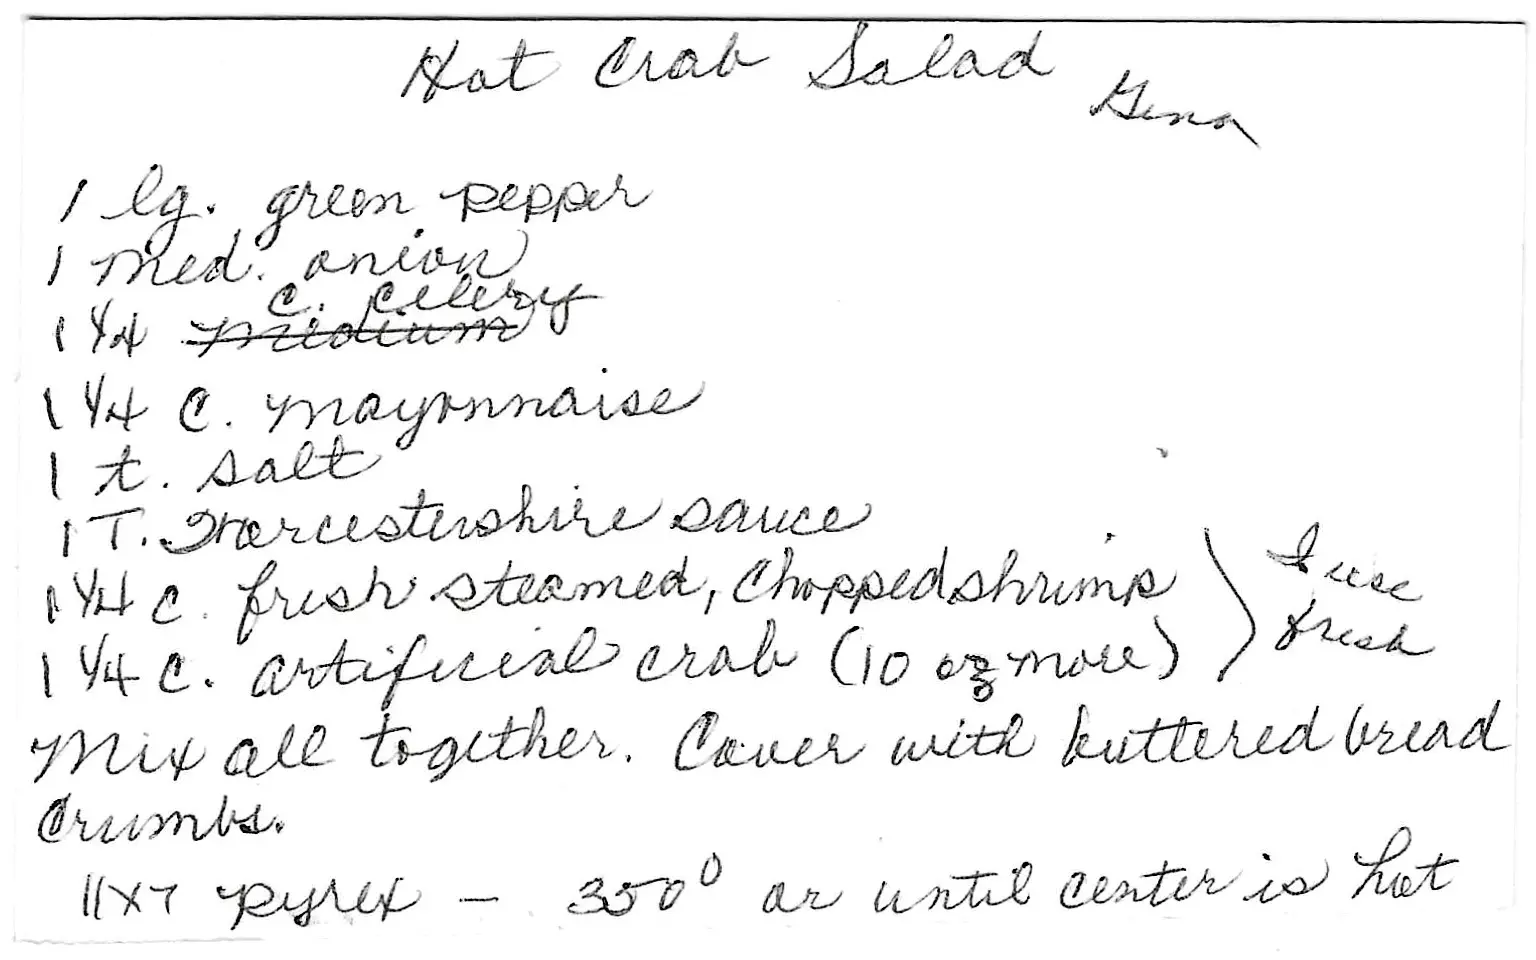 Hot Crab Salad
Gena
1 lg. green pepper
1 med. onion
c. celery
1 1/4 medium
1 1/4 C. mayonnaise
1 t. salt
1 T. Worcestershire sauce
1 1/4 c. fresh steamed, chopped shrimp
1 1/4 c. artificial crab (10 oz more)
I use
fresh
Mix all together. Cover with buttered bread
crumbs.
11x7 pyrex - 350° or until center is hot